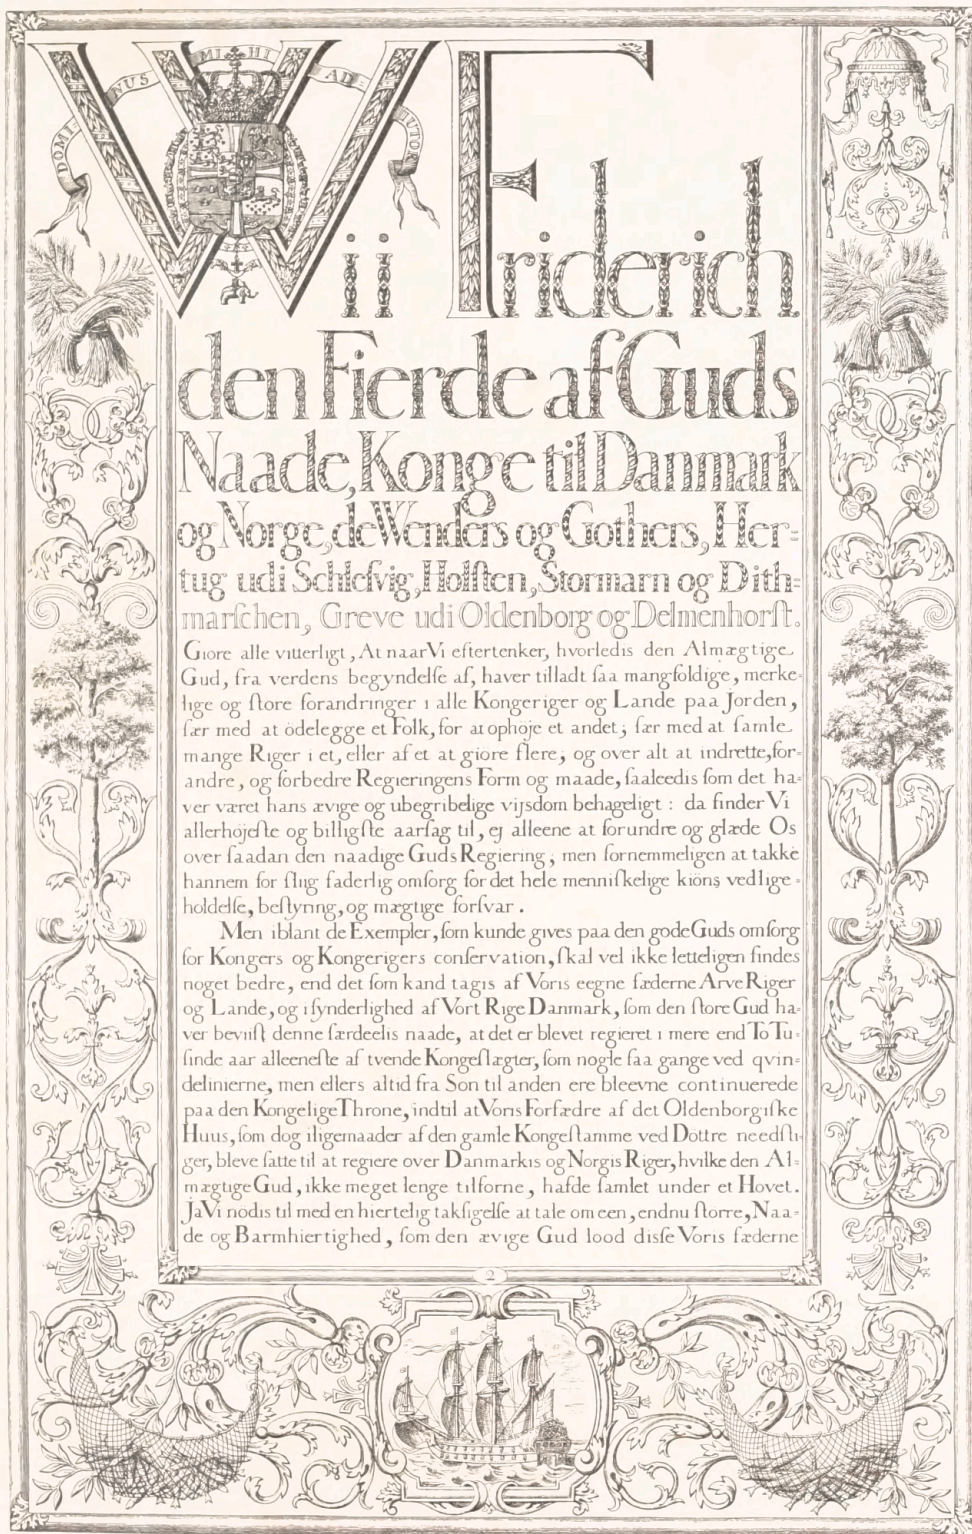 DOMI NUS MI HI AD= IUTOR
Wii Friderich
den Fierde af Guds
Naade, Konge til Danmark
og Norge, de Wenders og Gothers, Her=
tug udi Schleſvig, Holſten, Stormarn og Dith=
marſchen, Greve udi Oldenborg og Delmenhorſt.
Giore alle vitterligt, At naar Vi eftertenker, hvorledis den Almægtige
Gud, fra verdens begyndelſe af, haver tilladt ſaa mangfoldige, merke=
lige og ſtore forandringer i alle Kongeriger og Lande paa Jorden,
ſær med at ödelegge et Folk, for at ophöje et andet; ſær med at ſamle
mange Riger i et, eller af et at giore flere; og over alt at indrette, for=
andre, og forbedre Regieringens Form og maade, ſaaleedis ſom det ha=
ver været hans ævige og ubegribelige vijsdom behageligt : da finder Vi
allerhöjeſte og billigſte aarſag til, ej alleene at forundre og glæde Os
over ſaadan den naadige Guds Regiering; men fornemmeligen at takke
hannem for ſlig faderlig omſorg for det hele menniſkelige kiöns vedlige=
holdelſe, beſtyring, og mægtige forſvar.
Men iblant de Exempler, ſom kunde gives paa den gode Guds omſorg
for Kongers og Kongerigers conſervation, ſkal vel ikke letteligen findes
noget bedre, end det ſom kand tagis af Voris eegne fæderne Arve Riger
og Lande, og iſynderlighed af Vort Rige Danmark, ſom den ſtore Gud ha=
ver beviiſt denne færdeelis naade, at det er blevet regieret i mere end To Tu=
ſinde aar alleeneſte af tvende Kongeſlægter, ſom nogle faa gange ved qvin=
delinierne, men ellers altid fra Son til anden ere bleevne continuerede
paa den Kongelige Throne, indtil at Voris Forfædre af det Oldenborgiſke
Huus, ſom dog iligemaader af den gamle Kongeſtamme ved Döttre needſti=
ger, bleve ſatte til at regiere over Danmarkis og Norgis Riger, hvilke den Al=
mægtige Gud, ikke meget lenge tilforne, hafde ſamlet under et Hovet.
Ja Vi nödis til med en hiertelig takſigelſe at tale om een, endnu ſtorre, Naa=
de og Barmhiertighed, ſom den ævige Gud lood disſe Voris fæderne
2